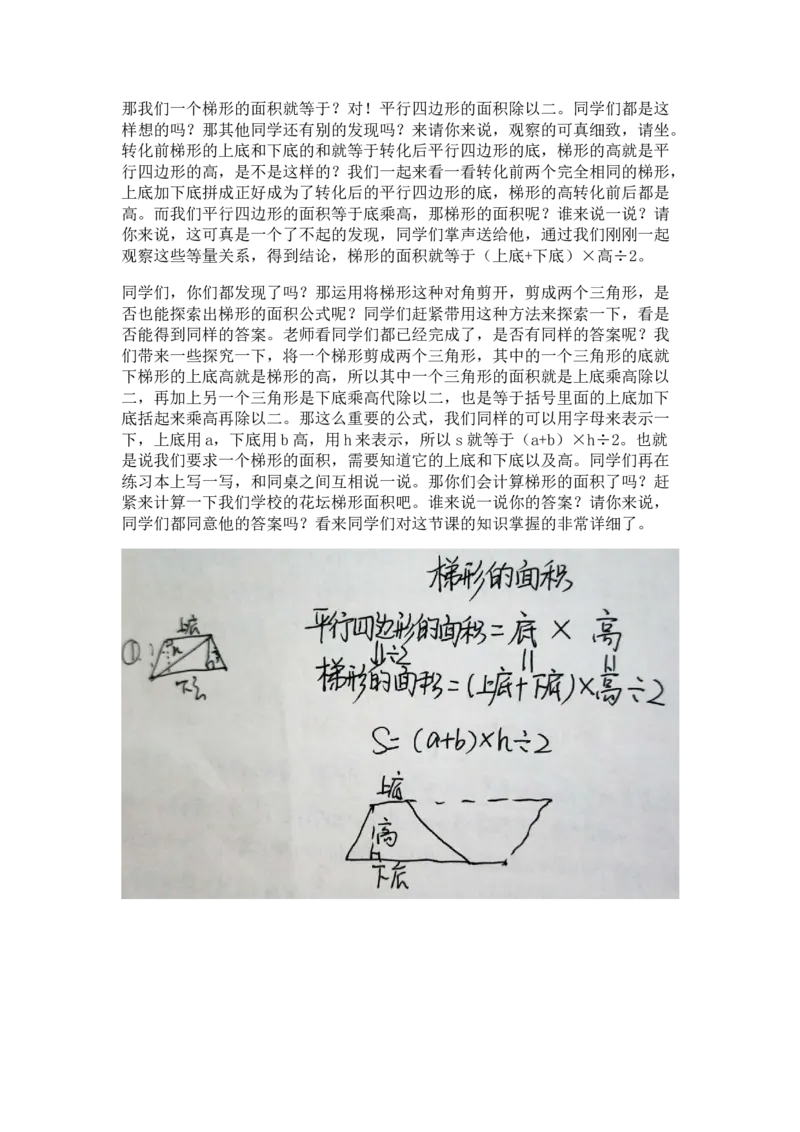 那我们一个梯形的面积就等于？对！平行四边形的面积除以二。同学们都是这
样想的吗？那其他同学还有别的发现吗？来请你来说，观察的可真细致，请坐。
转化前梯形的上底和下底的和就等于转化后平行四边形的底，梯形的高就是平
行四边形的高，是不是这样的？我们一起来看一看转化前两个完全相同的梯形，
上底加下底拼成正好成为了转化后的平行四边形的底，梯形的高转化前后都是
高。而我们平行四边形的面积等于底乘高，那梯形的面积呢？谁来说一说？请
你来说，这可真是一个了不起的发现，同学们掌声送给他，通过我们刚刚一起
观察这些等量关系，得到结论，梯形的面积就等于（上底+下底）×高÷2。
同学们，你们都发现了吗？那运用将梯形这种对角剪开，剪成两个三角形，是
否也能探索出梯形的面积公式呢？同学们赶紧带用这种方法来探索一下，看是
否能得到同样的答案。老师看同学们都已经完成了，是否有同样的答案呢？我
们带来一些探究一下，将一个梯形剪成两个三角形，其中的一个三角形的底就
下梯形的上底高就是梯形的高，所以其中一个三角形的面积就是上底乘高除以
二，再加上另一个三角形是下底乘高代除以二，也是等于括号里面的上底加下
底括起来乘高再除以二。那这么重要的公式，我们同样的可以用字母来表示一
下，上底用a，下底用b高，用h来表示，所以s就等于（a+b）×h÷2。也就
是说我们要求一个梯形的面积，需要知道它的上底和下底以及高。同学们再在
练习本上写一写，和同桌之间互相说一说。那你们会计算梯形的面积了吗？赶
紧来计算一下我们学校的花坛梯形面积吧。谁来说一说你的答案？请你来说，
同学们都同意他的答案吗？看来同学们对这节课的知识掌握的非常详细了。
梯形的面积
平行四边形的面积=底 × 高
÷2
梯形的面积=(上底+下底)×高÷2
S=(a+b)×h÷2
①
上底
h
下底
上底
高
下底